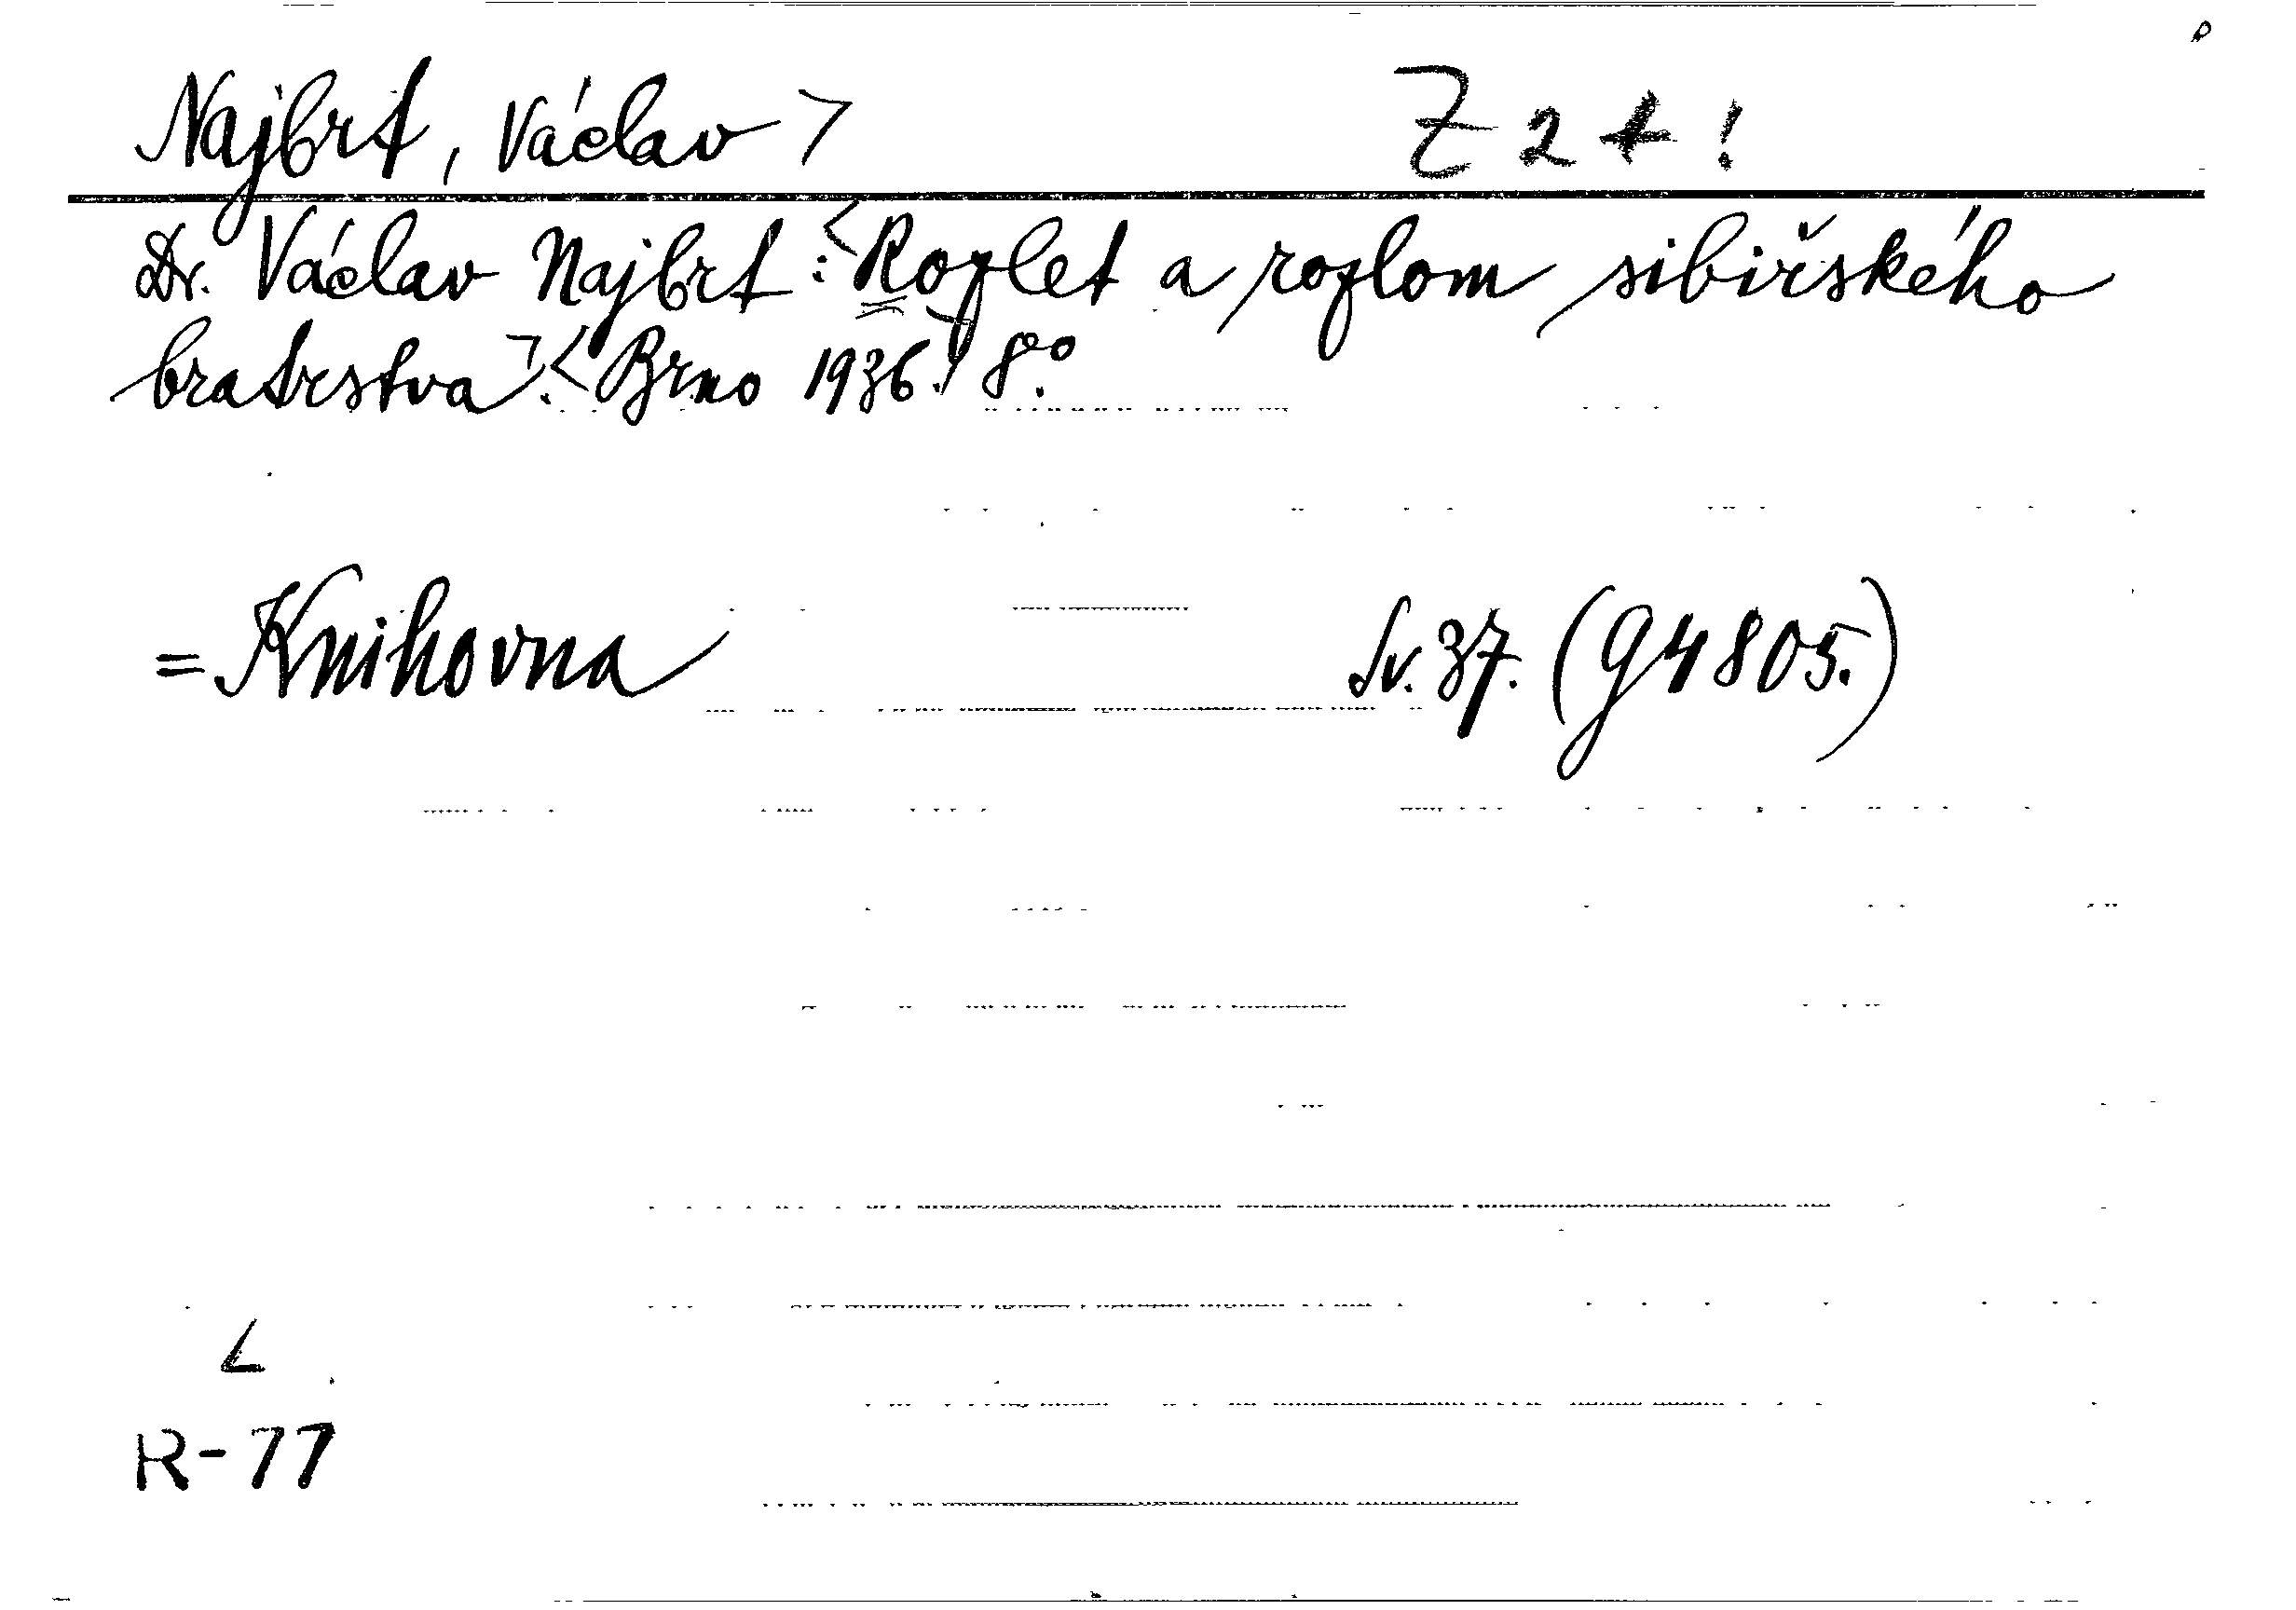 Najbrt, Václav > Z 2 + !
Dr. Václav Najbrt : <Rozlet a rozlom sibiřského
bratrstva>. <Brno 1936.> 8.°
= Knihovna Sv. 37. (94805.)
R-77